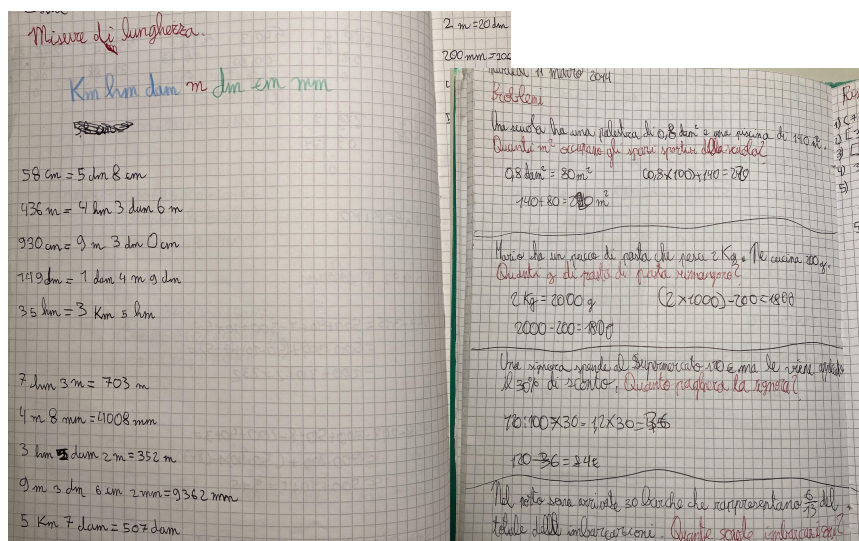 Misure di lunghezza.
Km hm dam m dm cm mm
58 cm = 5 dm 8 cm
436 m = 4 hm 3 dam 6 m
930 cm = 9 m 3 dm 0 cm
149 dm = 1 dam 4 m 9 dm
35 hm = 3 Km 5 hm
7 hm 3 m = 703 m
4 m 8 mm = 4008 mm
3 hm 5 dam 2 m = 352 m
9 m 3 dm 6 cm 2 mm = 9362 mm
5 Km 7 dam = 507 dam
2 m = 20 dm
200 mm =
11 marzo 2014
Problemi
Una scuola ha una palestra di 0,8 dam² e una piscina di 140 
Quanti m² occupano gli spazi sportivi della scuola?
0,8 dam² = 80 m² (0,8 x 100) + 140 = 220
140 + 80 = 220 m²
Mario ha un pacco di pasta che pesa 2 Kg. Ne cucina 200 g.
Quanti g di pasta di pasta rimangono?
2 Kg = 2000 g (2 x 1000) - 200 = 1800
2000 - 200 = 1800
Una signora spende al supermercato 120 € ma le viene
il 30% di sconto. Quanto pagherà la signora?
120 : 100 x 30 = 1,2 x 30 = 36
120 - 36 = 84 €
Nel porto sono arrivate 30 barche che rappresentano 6/13 del
totale delle imbarcazioni. Quante